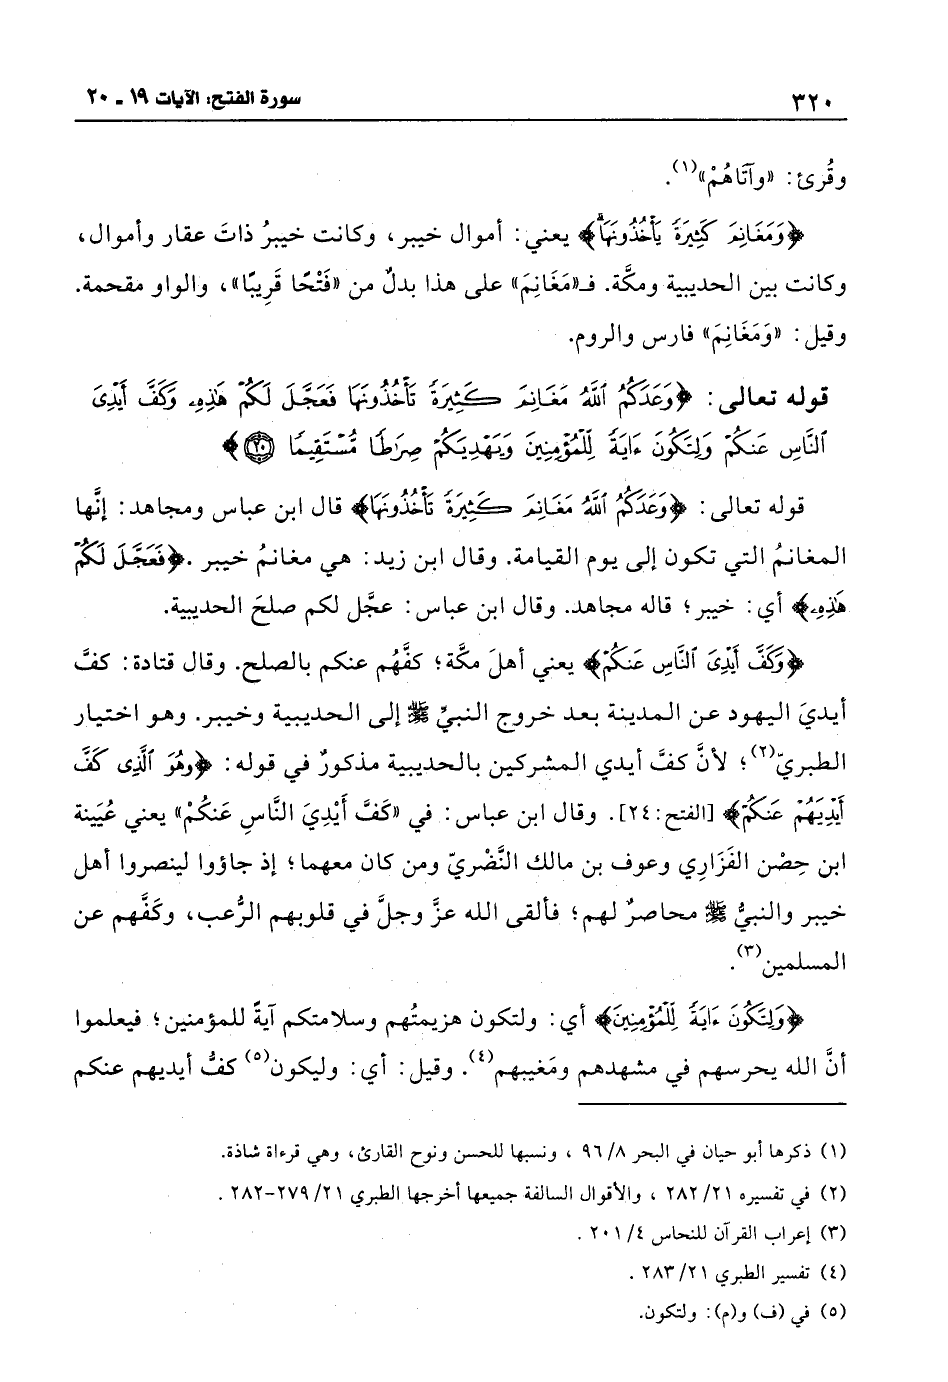 ٣٢٠
سورة الفتح: الآيات ١٩ ـ ٢٠
وقُرئ: «وآتَاهُمْ»(١).
﴿وَمَغَانِمَ كَثِيرَةً يَأْخُذُونَهَا﴾ يعني: أموال خيبر، وكانت خيبرُ ذاتَ عقار وأموال،
وكانت بين الحديبية ومكَّة. فـ«مَغَانِمَ» على هذا بدلٌ من «فَتْحًا قَرِيبًا»، والواو مقحمة.
وقيل: «وَمَغَانِمَ» فارس والروم.
قوله تعالى: ﴿وَعَدَكُمُ ٱللَّهُ مَغَانِمَ كَثِيرَةً تَأْخُذُونَهَا فَعَجَّلَ لَكُمْ هَٰذِهِۦ وَكَفَّ أَيْدِىَ
ٱلنَّاسِ عَنكُمْ وَلِتَكُونَ ءَايَةً لِّلْمُؤْمِنِينَ وَيَهْدِيَكُمْ صِرَٰطًا مُّسْتَقِيمًا ۝٢٠﴾
قوله تعالى: ﴿وَعَدَكُمُ ٱللَّهُ مَغَانِمَ كَثِيرَةً تَأْخُذُونَهَا﴾ قال ابن عباس ومجاهد: إنَّها
المغانمُ التي تكون إلى يوم القيامة. وقال ابن زيد: هي مغانمُ خيبر. ﴿فَعَجَّلَ لَكُمْ
هَٰذِهِۦ﴾ أي: خيبر؛ قاله مجاهد. وقال ابن عباس: عجَّل لكم صلحَ الحديبية.
﴿وَكَفَّ أَيْدِىَ ٱلنَّاسِ عَنكُمْ﴾ يعني أهلَ مكَّة؛ كفَّهُم عنكم بالصلح. وقال قتادة: كفَّ
أيديَ اليهود عن المدينة بعد خروج النبيِّ ﷺ إلى الحديبية وخيبر. وهو اختيار
الطبريّ(٢)؛ لأنَّ كفَّ أيدي المشركين بالحديبية مذكورٌ في قوله: ﴿وَهُوَ ٱلَّذِى كَفَّ
أَيْدِيَهُمْ عَنكُمْ﴾ [الفتح: ٢٤]. وقال ابن عباس: في «كَفَّ أَيْدِيَ النَّاسِ عَنكُمْ» يعني عُيَينة
ابن حِصْن الفَزَارِي وعوف بن مالك النَّضْريّ ومن كان معهما؛ إذ جاؤوا لينصروا أهل
خيبر والنبيُّ ﷺ محاصرٌ لهم؛ فألقى الله عزَّ وجلَّ في قلوبهم الرُّعب، وكَفَّهم عن
المسلمين(٣).
﴿وَلِتَكُونَ ءَايَةً لِّلْمُؤْمِنِينَ﴾ أي: ولتكون هزيمتُهم وسلامتكم آيةً للمؤمنين؛ فيعلموا
أنَّ الله يحرسهم في مشهدهم ومَغيبهم(٤). وقيل: أي: وليكون(٥) كفُّ أيديهم عنكم
(١) ذكرها أبو حيان في البحر ٨/ ٩٦ ، ونسبها للحسن ونوح القارئ، وهي قرءاة شاذة.
(٢) في تفسيره ٢١/ ٢٨٢ ، والأقوال السالفة جميعها أخرجها الطبري ٢١/ ٢٧٩-٢٨٢ .
(٣) إعراب القرآن للنحاس ٤/ ٢٠١ .
(٤) تفسير الطبري ٢١/ ٢٨٣ .
(٥) في (ف) و(م): ولتكون.